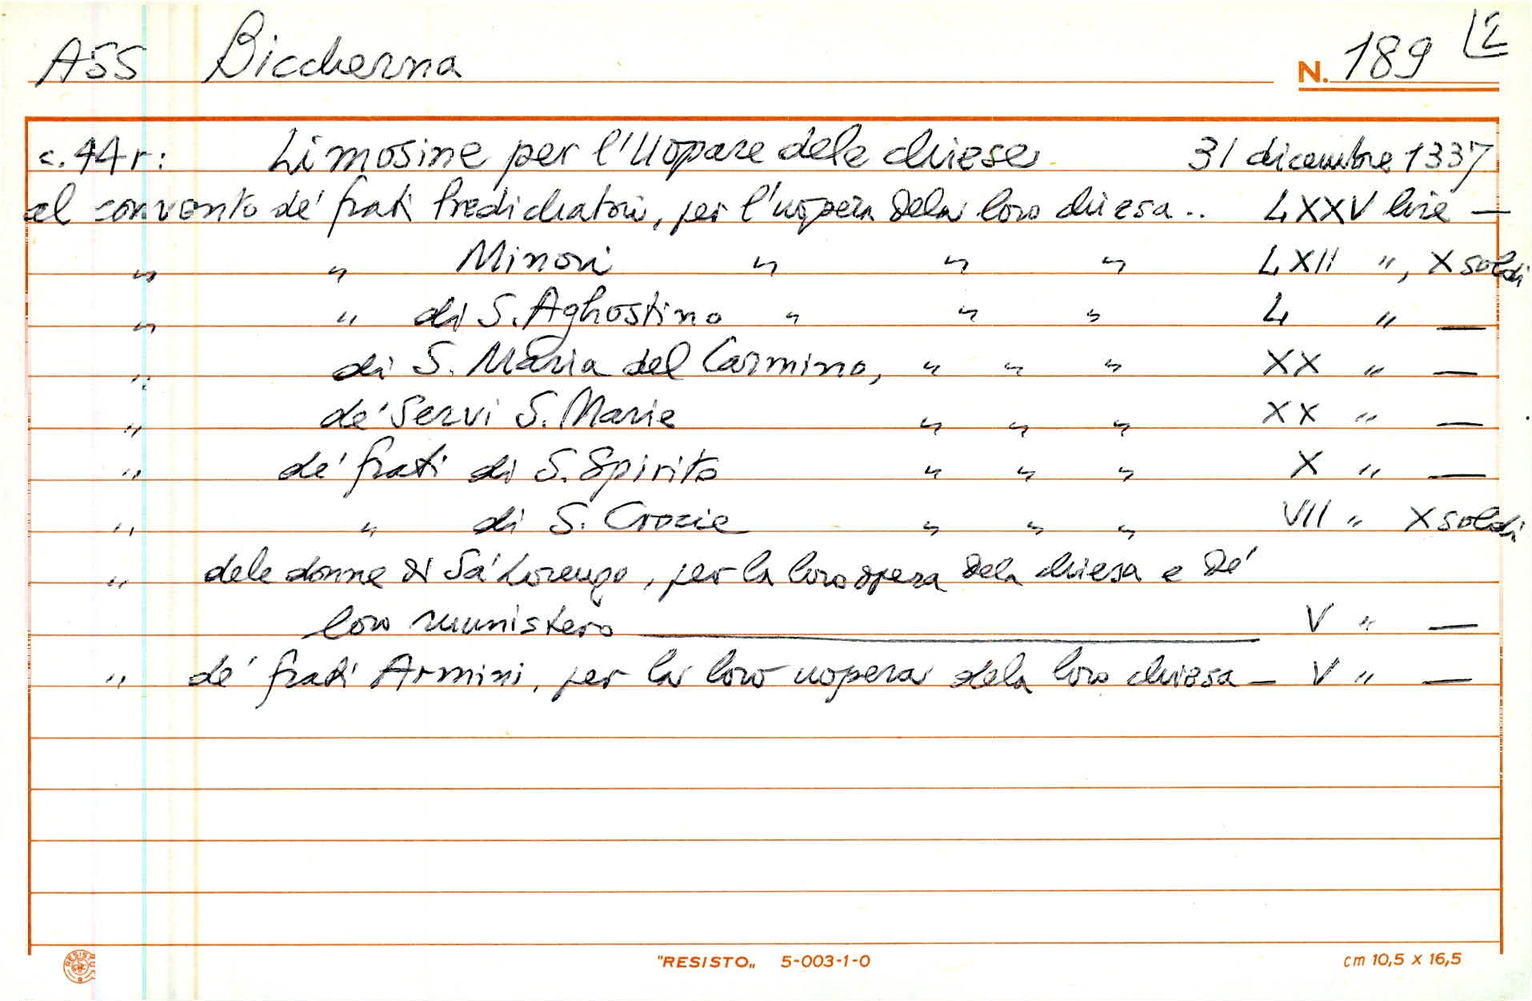 ASS Biccherna N. 189
c. 44r: Limosine per l'Uopare dele chiese 31 dicembre 1337
al convento de' frati Predichatori, per l'uopera dela loro chiesa.. LXXV lire —
" " Minori " " " LXII ", X soldi
" " di S. Aghostino " " " L " —
" di S. Maria del Carmino, " " " XX " —
" de' Servi S. Marie " " " XX " —
" de' frati di S. Spirito " " " X " —
" " di S. Crocie " " " VII " X soldi
" dele donne di Sa' Lorenço, per la loro opera dela chiesa e de'
loro munistero V " —
" de' frati Armini, per la loro uopera dela loro chiesa — V " —
"RESISTO„ 5-003-1-0 cm 10,5 x 16,5